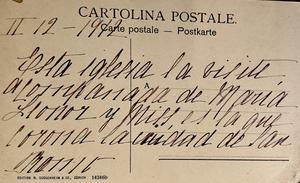 CARTOLINA POSTALE.
II 12 - 1912
Carte postale - Postkarte
Esta iglesia la visité
acompañada de Maria
Leonor y Miss es la que
corona la ciudad de San
Remo
EDITION R. GUGGENHEIM & Co., ZÜRICH 14366b